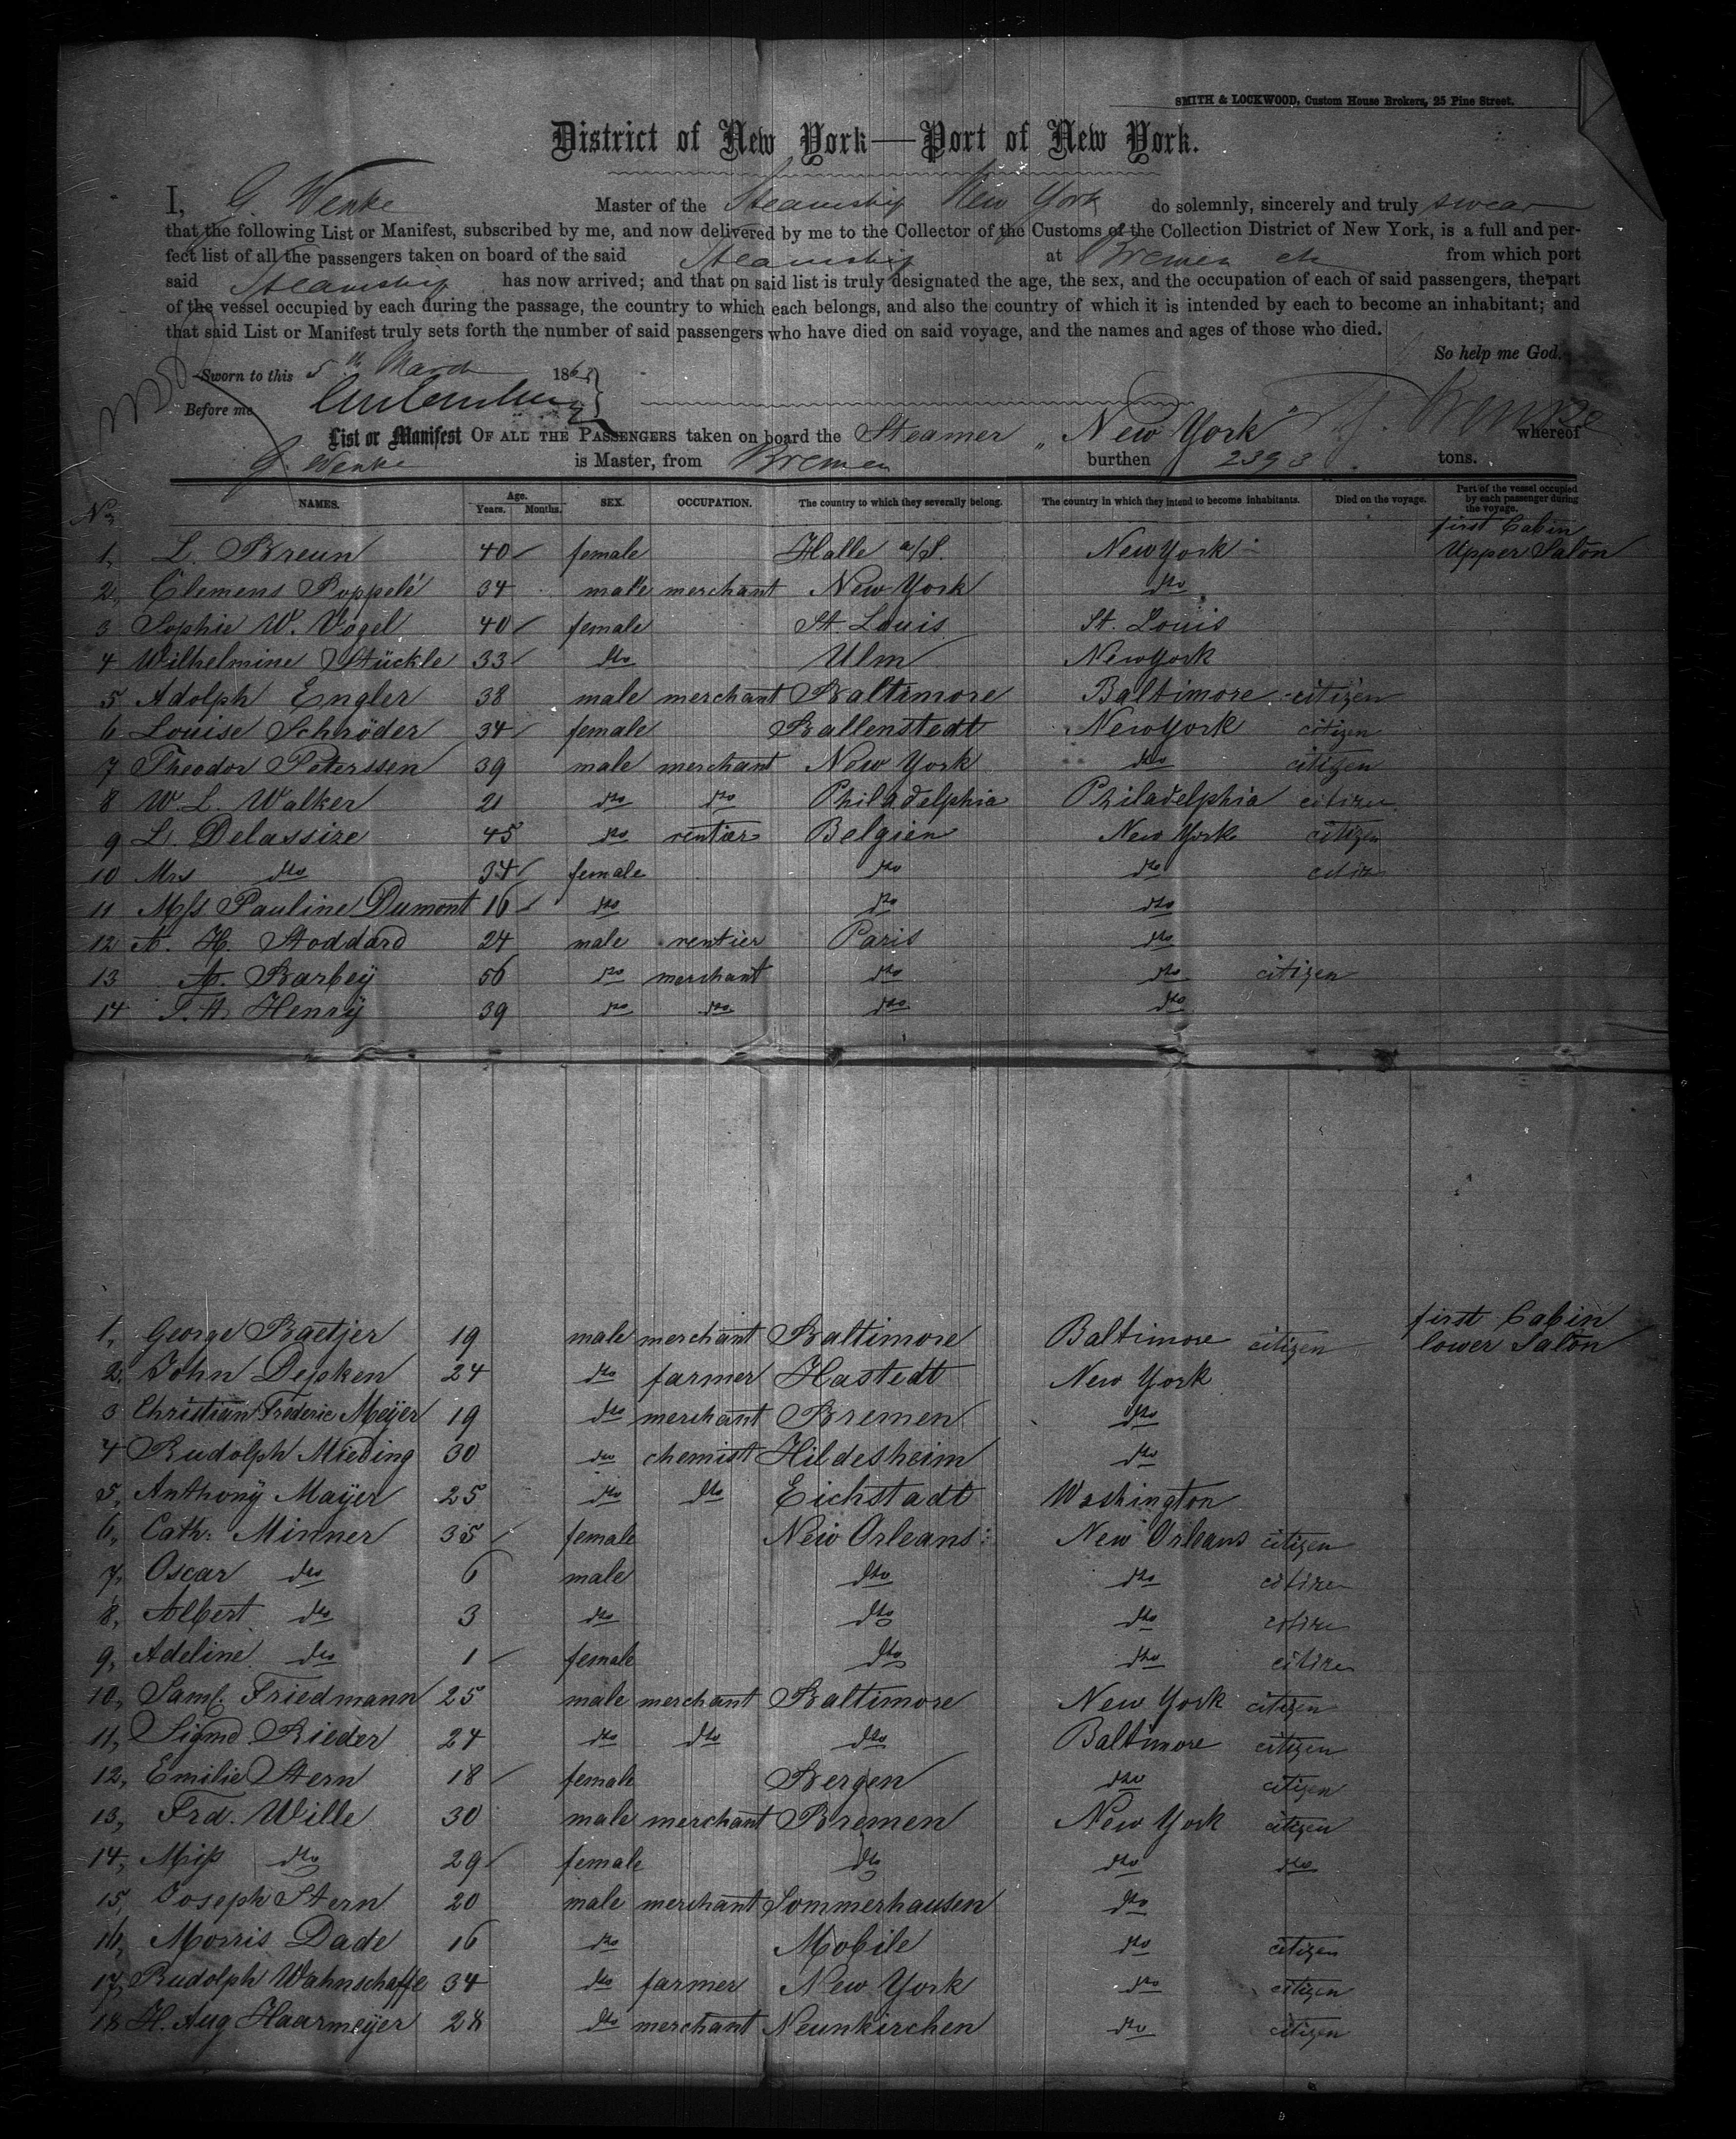 SMITH & LOCKWOOD, Custom House Brokers, 25 Pine Street.
District of New York—Port of New York.
I, G. Wenke Master of the Steamship New York do solemnly, sincerely and truly swear
that the following List or Manifest, subscribed by me, and now delivered by me to the Collector of the Customs of the Collection District of New York, is a full and per-
fect list of all the passengers taken on board of the said Steamship at Bremen from which port
said Steamship has now arrived; and that on said list is truly designated the age, the sex, and the occupation of each of said passengers, the part
of the vessel occupied by each during the passage, the country to which each belongs, and also the country of which it is intended by each to become an inhabitant; and
that said List or Manifest truly sets forth the number of said passengers who have died on said voyage, and the names and ages of those who died.
So help me God.
Sworn to this 5th March 186
Before me
G. Wenke
List or Manifest OF ALL THE PASSENGERS taken on board the Steamer "New York" whereof
G. Wenke is Master, from Bremen burthen 2393 tons.
No. NAMES. Age. Years. Months. SEX. OCCUPATION. The country to which they severally belong. The country in which they intend to become inhabitants. Died on the voyage. Part of the vessel occupied by each passenger during the voyage.
first Cabin
1, L. Breun 40 female Halle a/S. New York Upper Salon
2, Clemens Poppelé 34 male merchant New York dto
3 Sophie W. Vogel 40 female St. Louis St. Louis
4 Wilhelmine Stückle 33 dto Ulm New York
5 Adolph Engler 38 male merchant Baltimore Baltimore citizen
6 Louise Schröder 34 female Ballenstedt New York citizen
7 Theodor Peterssen 39 male merchant New York dto citizen
8 W. L. Walker 21 dto dto Philadelphia Philadelphia citizen
9 L. Delassize 45 dto rentier Belgien New York citizen
10 Mrs dto 34 female dto dto citizen
11 Miss Pauline Dumont 16 dto dto dto
12 A. H. Stoddard 24 male rentier Paris dto
13 A. Barbey 56 dto merchant dto dto citizen
14 Henry 39 dto dto dto dto
first Cabin
1, George Baetjer 19 male merchant Baltimore Baltimore citizen lower Salon
2, John Depken 24 dto farmer Hastedt New York
3 Christian Frederic Meijer 19 dto merchant Bremen dto
4 Rudolph Mieding 30 dto chemist Hildesheim dto
5, Anthony Mayer 25 dto dto Eichstadt Washington
6, Cath: Minner 35 female New Orleans New Orleans citizen
7, Oscar dto 6 male dto dto citizen
8, Albert dto 3 dto dto dto citizen
9, Adeline dto 1 female dto dto citizen
10, Saml. Friedmann 25 male merchant Baltimore New York citizen
11, Sigmd. Rieder 24 dto dto dto Baltimore citizen
12, Emilie Stern 18 female Bergen dto citizen
13, Frd. Wille 30 male merchant Bremen New York citizen
14, Miss dto 29 female dto dto dto
15, Joseph Stern 20 male merchant Sommerhausen dto
16, Morris Dade 16 dto Mobile dto citizen
17, Rudolph Wahnschaffe 34 dto farmer New York dto citizen
18 H. Aug Haarmeijer 28 dto merchant Neunkirchen dto citizen